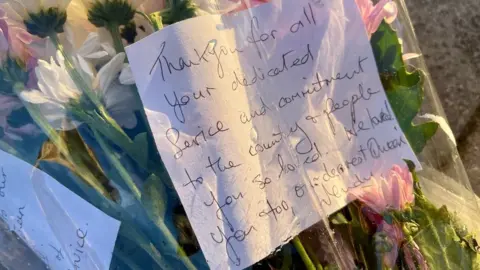 Thank you for all
your dedicated
Service and commitment
to the country & people
you so loved. We loved
you too, our dearest Queen
Wendy
our
Service.